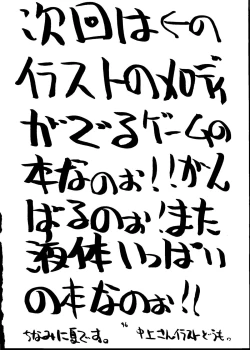 次回は←の
イラストのメロディ
がでるゲームの
本なのぉ！！がん
ばるのぉ！また
液体いっぱい
の本なのぉ！！
ちなみに夏です。 中上さんイラストどうもっ